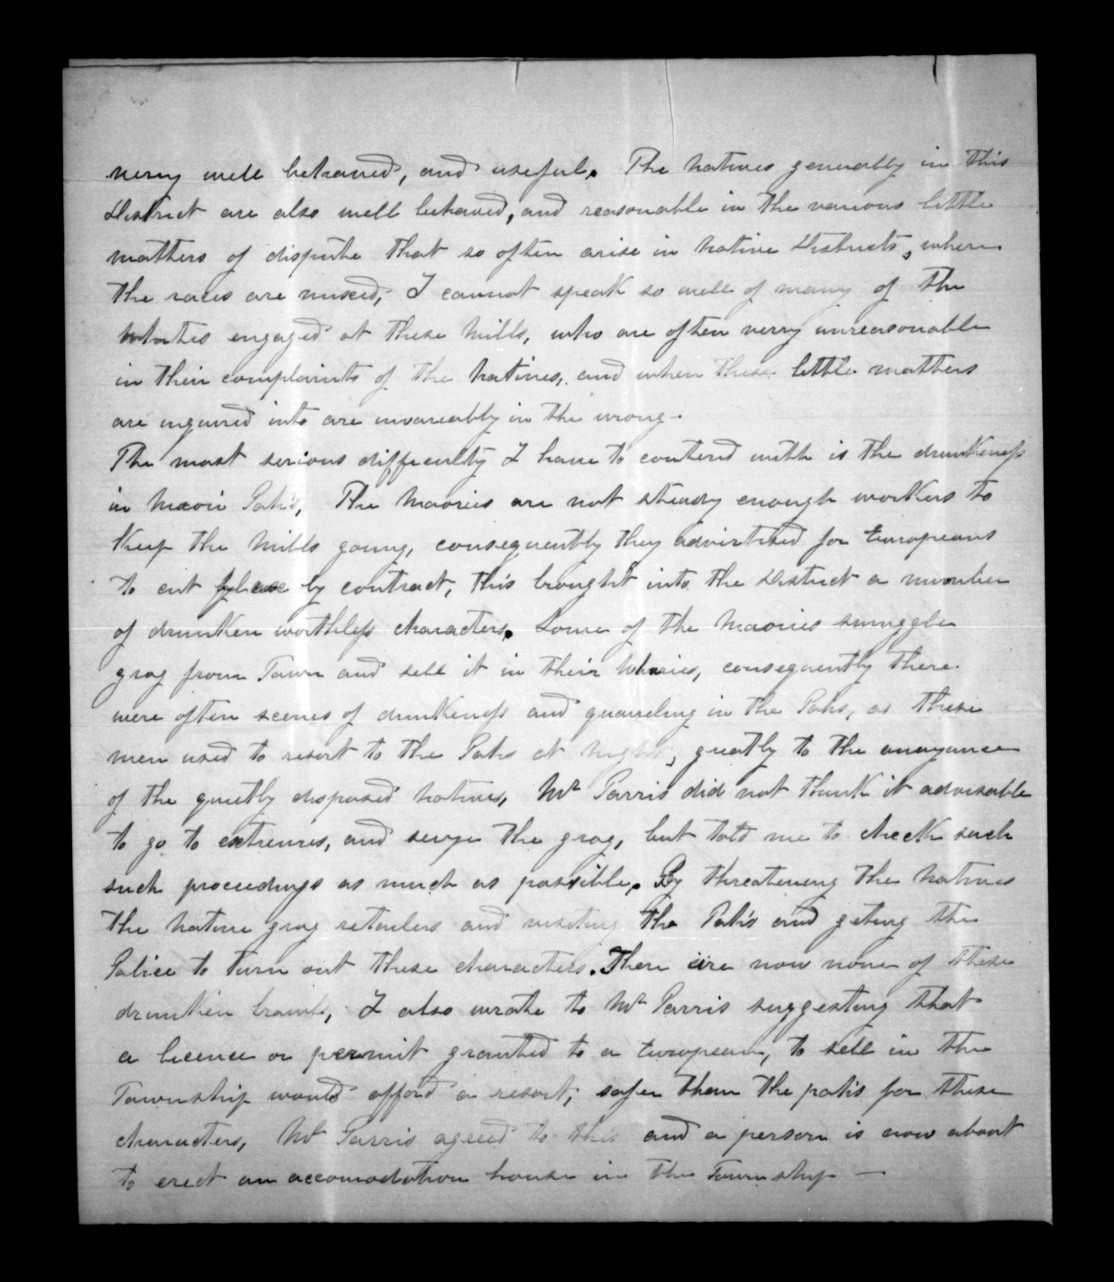 very well behaved, and useful. The Natives generally in this
District are also well behaved, and reasonable in the various little
matters of dispute that so often arise in Native Districts, where
the races are mixed, I cannot speak so well of many of the
whites engaged at these Mills, who are often very unreasonable
in their complaints of the Natives, and when these little matters
are inquired into are invariably in the wrong -
The most serious difficulty I have to contend with is the drunkeness
in Maori Pah's, The Maories are not steady enough workers to
keep the Mills going, consequently they advertised for Europeans
to cut by contract, this brought into the District a number
of drunken worthless characters. Some of the Maories smuggle
grog from Town and sell it in their Wharies, consequently there
were often scenes of drunkeness and quarreling in the Pahs, as these
men used to resort to the Pahs at night, greatly to the annoyance
of the quietly disposed Natives, Mr Parris did not think it advisable
to go to extremes, and seize the grog, but told me to check such
such proceedings as much as possible. By threatening the Natives
the Native grog retailers and visiting the Pah's and geting the
Police to turn out these characters. There are now none of these
drunken brawls, I also wrote to Mr Parris suggesting that
a licence or permit granted to a European, to sell in the
Township would afford a resort, safer than the pah's for these
characters, Mr Parris agreed to this and a person is now about
to erect an accomodation house in the Township —